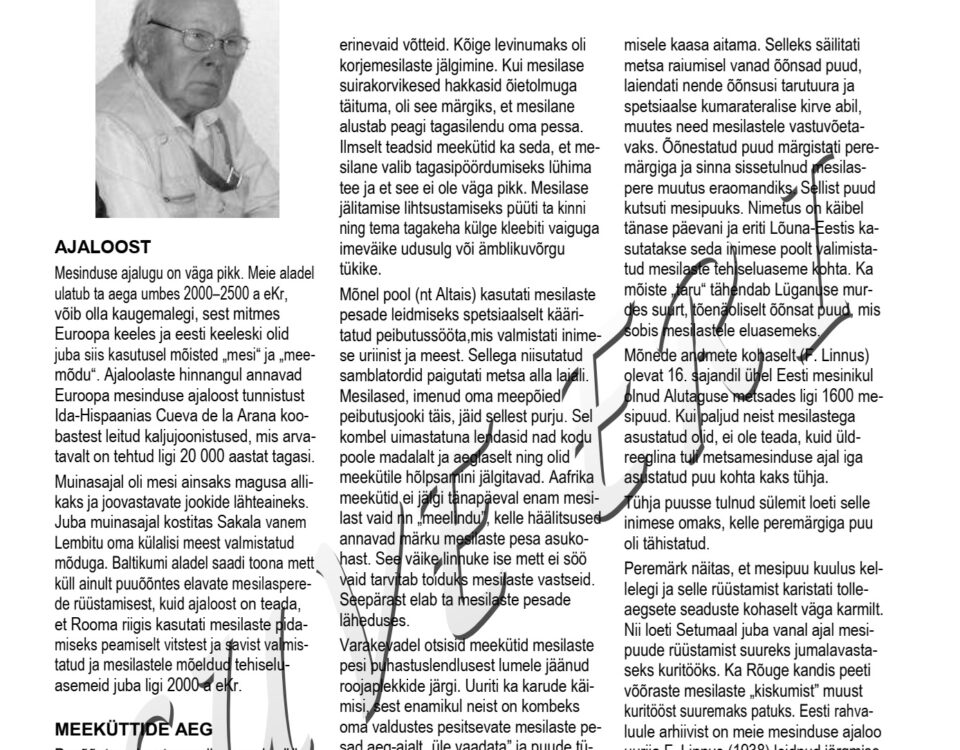 AJALOOST
Mesinduse ajalugu on väga pikk. Meie aladel
ulatub ta aega umbes 2000–2500 a eKr,
võib olla kaugemalegi, sest mitmes
Euroopa keeles ja eesti keeleski olid
juba siis kasutusel mõisted „mesi“ ja „mee-
mõdu“. Ajaloolaste hinnangul annavad
Euroopa mesinduse ajaloost tunnistust
Ida-Hispaanias Cueva de la Arana koo-
bastest leitud kaljujoonistused, mis arva-
tavalt on tehtud ligi 20 000 aastat tagasi.
Muinasajal oli mesi ainsaks magusa alli-
kaks ja joovastavate jookide lähteaineks.
Juba muinasajal kostitas Sakala vanem
Lembitu oma külalisi meest valmistatud
mõduga. Baltikumi aladel saadi toona mett
küll ainult puuõõntes elavate mesilaspere-
de rüüstamisest, kuid ajaloost on teada,
et Rooma riigis kasutati mesilaste pida-
miseks peamiselt vitstest ja savist valmis-
tatud ja mesilastele mõeldud tehiselu-
asemeid juba ligi 2000 a eKr.
MEEKÜTTIDE AEG
erinevaid võtteid. Kõige levinumaks oli
korjemesilaste jälgimine. Kui mesilase
suirakorvikesed hakkasid õietolmuga
täituma, oli see märgiks, et mesilane
alustab peagi tagasilendu oma pessa.
Ilmselt teadsid meekütid ka seda, et me-
silane valib tagasipöördumiseks lühima
tee ja et see ei ole väga pikk. Mesilase
jälitamise lihtsustamiseks püüti ta kinni
ning tema tagakeha külge kleebiti vaiguga
imeväike udusulg või ämblikuvõrgu
tükike.
Mõnel pool (nt Altais) kasutati mesilaste
pesade leidmiseks spetsiaalselt kääri-
tatud peibutussööta,mis valmistati inime-
se uriinist ja meest. Sellega niisutatud
samblatordid paigutati metsa alla laiali.
Mesilased, imenud oma meepõied
peibutusjooki täis, jäid sellest purju. Sel
kombel uimastatuna lendasid nad kodu
poole madalalt ja aeglaselt ning olid
meekütile hõlpsamini jälgitavad. Aafrika
meekütid ei järgi tänapäeval enam mesi-
last vaid nn „meelindu”, kelle häälitsused
annavad märku mesilaste pesa asuko-
hast. See väike linnuke ise mett ei söö
vaid tarvitab toiduks mesilaste vastseid.
Seepärast elab ta mesilaste pesade
läheduses.
Varakevadel otsisid meekütid mesilaste
pesi puhastuslendlusest lumele jäänud
roojaplekkide järgi. Uuriti ka karude käi-
misi, sest enamikul neist on kombeks
oma valdustes pesitsevate mesilaste pe-
sad aeg-ajalt „üle vaadata” ja puude tü-
misele kaasa aitama. Selleks säilitati
metsa raiumisel vanad õõnsad puud,
laiendati nende õõnsusi tarutuura ja
spetsiaalse kumarateralise kirve abil,
muutes need mesilastele vastuvõeta-
vaks. Õõnestatud puud märgistati pere-
märgiga ja sinna sissetulnud mesilas-
pere muutus eraomandiks. Sellist puud
kutsuti mesipuuks. Nimetus on käibel
tänase päevani ja eriti Lõuna-Eestis ka-
sutatakse seda inimese poolt valmista-
tud mesilaste tehiseluaseme kohta. Ka
mõiste „taru“ tähendab Lüganuse mur-
des suurt, tõenäoliselt õõnsat puud, mis
sobis mesilastele eluasemeks.
Mõnede andmete kohaselt (F. Linnus)
olevat 16. sajandil ühel Eesti mesinikul
olnud Alutaguse metsades ligi 1600 me-
sipuud. Kui paljud neist mesilastega
asustatud olid, ei ole teada, kuid üld-
reeglina tuli metsamesinduse ajal iga
asustatud puu kohta kaks tühja.
Tühja puusse tulnud sülemit loeti selle
inimese omaks, kelle peremärgiga puu
oli tähistatud.
Peremärk näitas, et mesipuu kuulus kel-
lelegi ja selle rüüstamist karistati tolle-
aegsete seaduste kohaselt väga karmilt.
Nii loeti Setumaal juba vanal ajal mesi-
puude rüüstamist suureks jumalavasta-
seks kuritööks. Ka Rõuge kandis peeti
võõraste mesilaste „kiskumist” muust
kuritööst suuremaks patuks. Eesti rahva-
luule arhiivist on meie mesinduse ajaloo